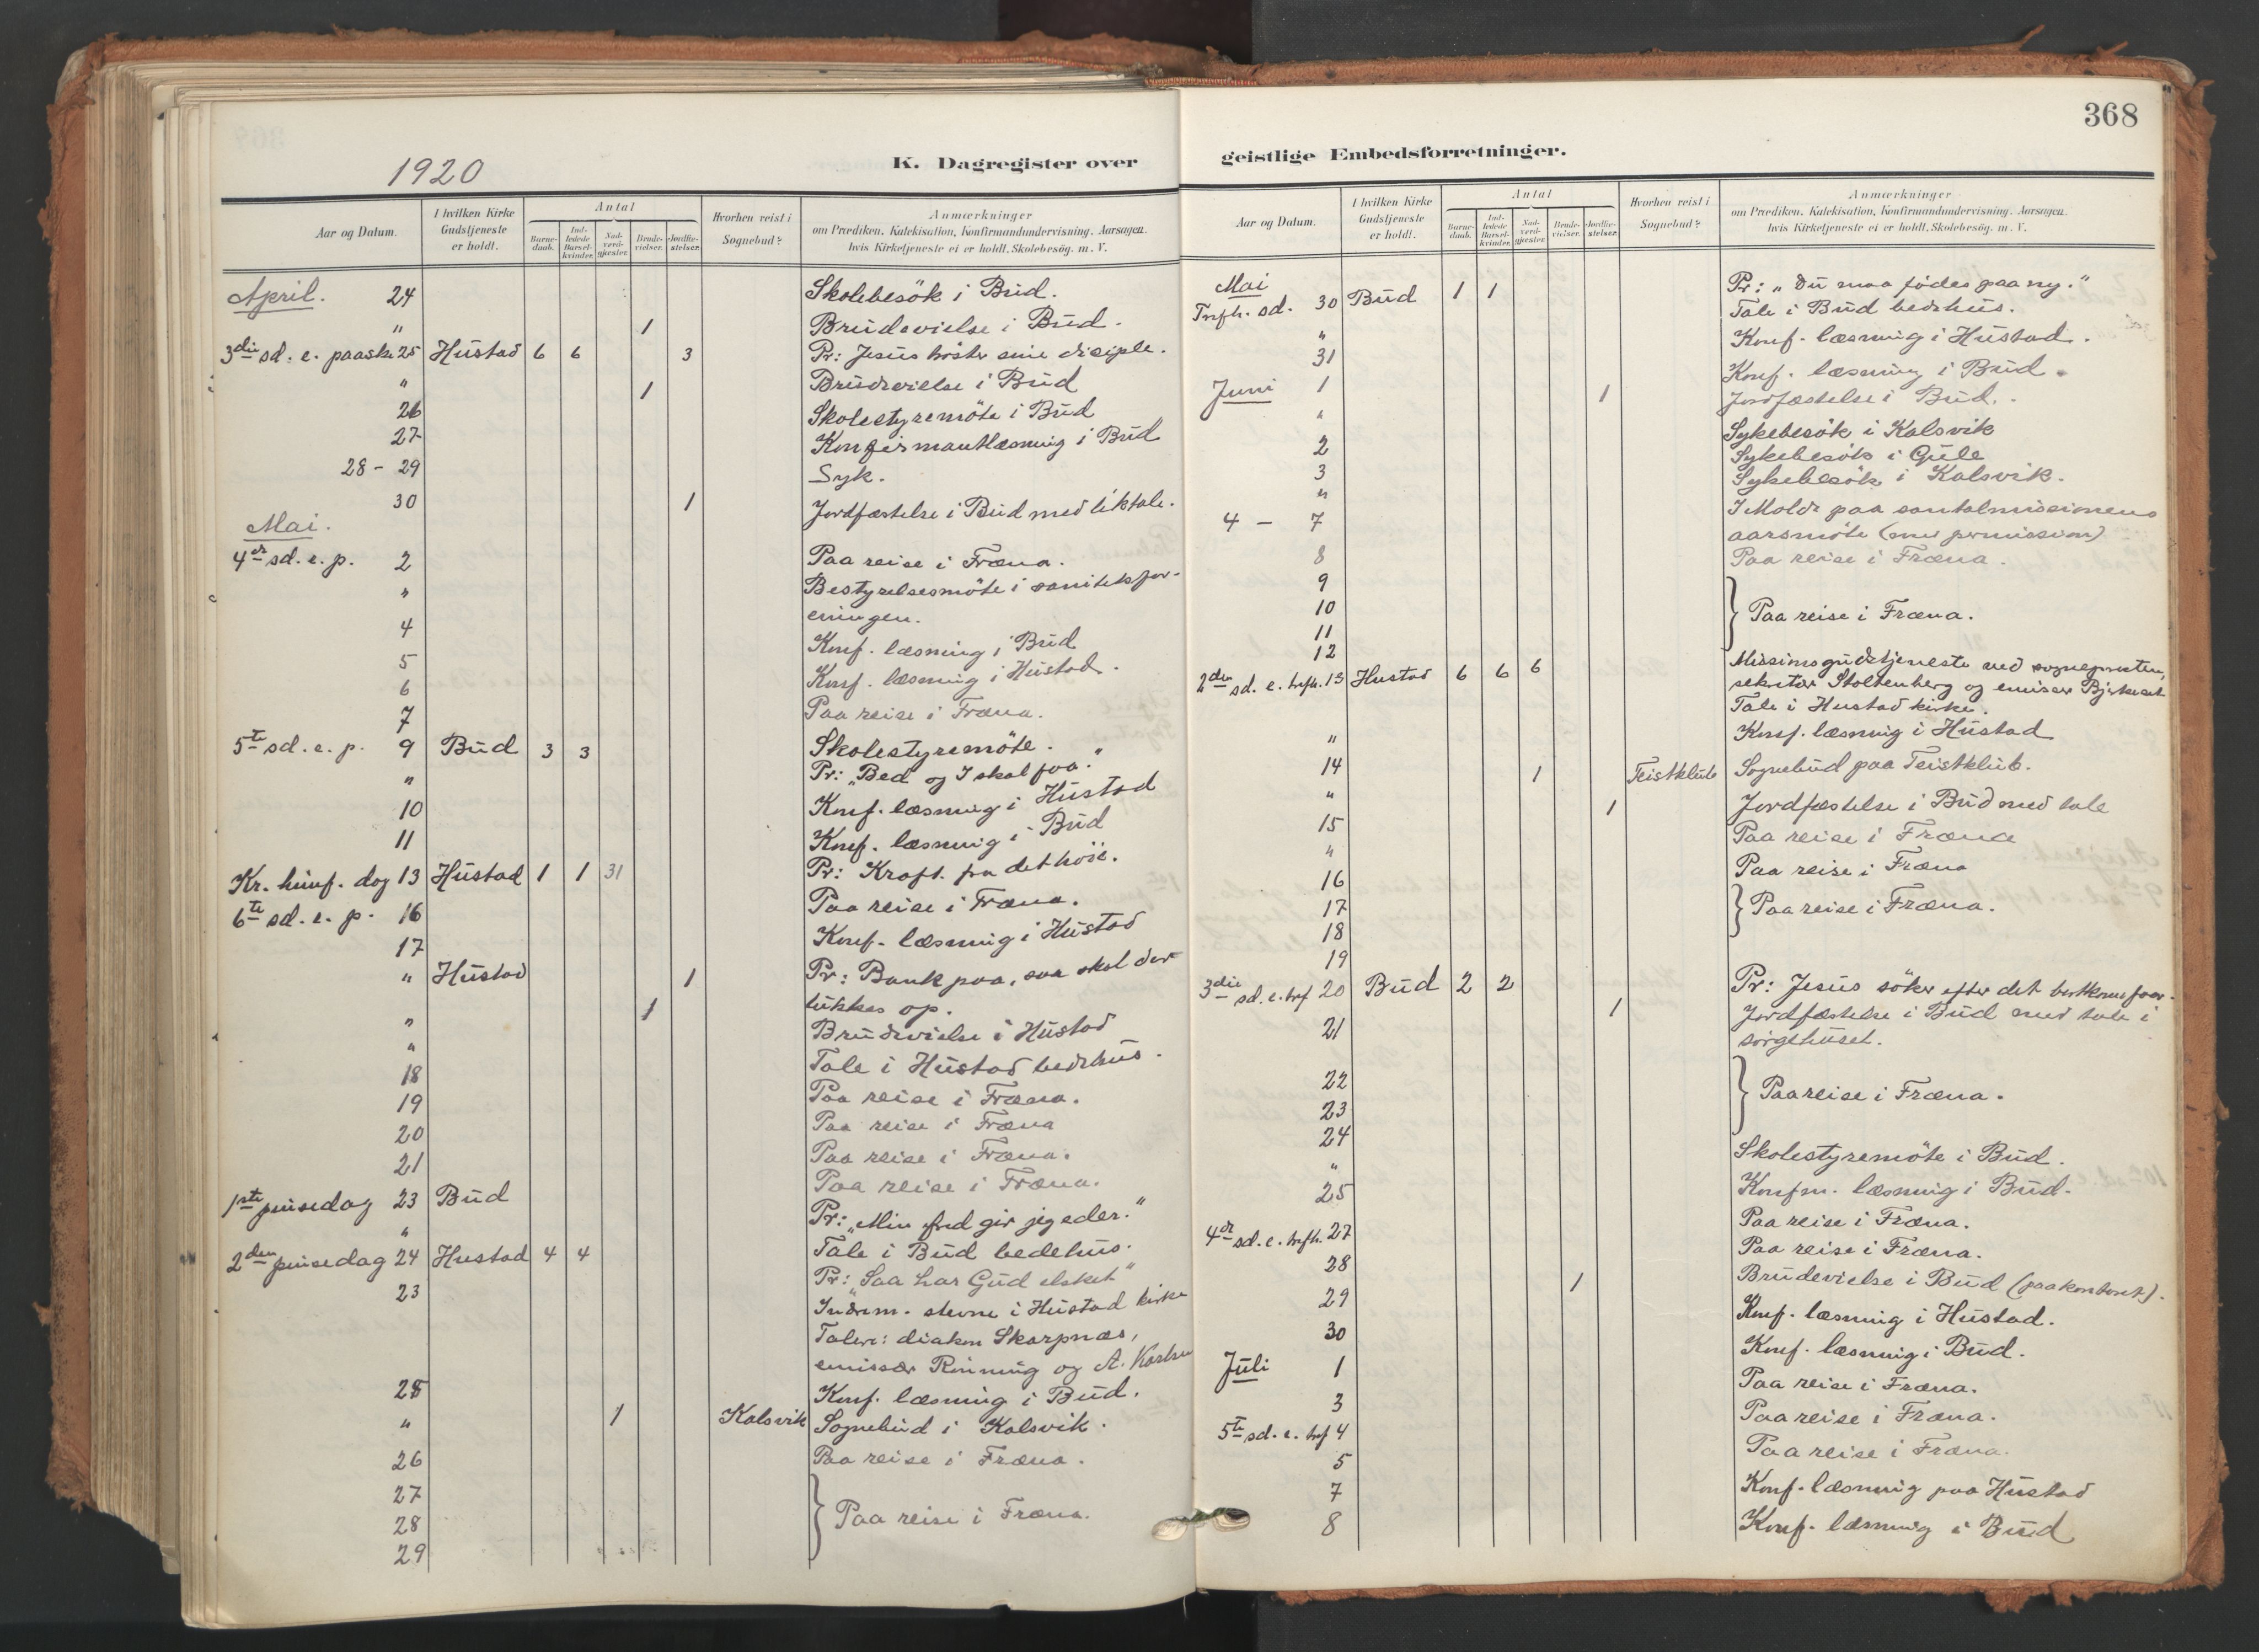 368
1920
K. Dagregister over
geistlige Embedsforretninger.
Aar og Datum.
I hvilken Kirke Gudstjeneste er holdt.
Antal
Barne-daab.
Ind-ledede Barsel-kvinder.
Nad-verd-gjæster.
Brude-vielser.
Jordfæ-stelser.
Hvorhen reist i Sognebud?
Anmærkninger
om Prædiken, Katekisation, Konfirmandundervisning. Aarsagen.
hvis Kirketjeneste ei er holdt. Skolebesøg. m. V.
April. 24 Skolebesök i Bud.
" 1 Brudevielse i Bud.
3die sd. e. paaske 25 Hustad 6 6 3 Pr: Jesus trøster sine disciple.
" 1 Brudevielse i Bud
26 Skolestyremöte i Bud
27 Konfirmantlæsning i Bud
28 - 29 Syk.
30 1 Jordfæstelse i Bud med liktale.
Mai.
4de sd. e. p. 2 Paa reise i Fræna.
" Bestyrelsesmöte i sanitetsfor-
eningen.
4 Konf. læsning i Bud
5 Konf. læsning i Hustad.
6 Paa reise i Fræna.
7 Skolestyremöte.
5te sd. e. p. 9 Bud 3 3 Pr: "Bed og I skal faa."
"
10 Konf. læsning i Hustad
11 Konf. læsning i Bud
Kr. himf. dag 13 Hustad 1 1 31 Pr: Kraft fra det höie.
6te sd. e. p. 16 Paa reise i Fræna.
17 Konf. læsning i Hustad
" Hustad 1 Pr: Bank paa, saa skal der
lukkes op.
" 1 Brudevielse i Hustad
" Tale i Hustad bedehus.
18 Paa reise i Fræna.
19 Paa reise i Fræna
20 Paa reise i Fræna.
21 Paa reise i Fræna.
1ste pinsedag 23 Bud Pr: "Min fred gir jeg eder."
" Tale i Bud bedehus.
2den pinsedag 24 Hustad 4 4 Pr: "Saa har Gud elsket"
23 Indrem. stevne i Hustad kirke
Talere: diakon Skarpnæs,
emissær Rinning og A. Karlsen
25 Konf. læsning i Bud.
" 1 Kalsvik Sognebud i Kalsvik.
26 Paa reise i Fræna.
27
28 Paa reise i Fræna.
29
Aar og Datum.
I hvilken Kirke Gudstjeneste er holdt.
Antal
Barne-daab.
Ind-ledede Barsel-kvinder.
Nad-verd-gjæster.
Brude-vielser.
Jordfæ-stelser.
Hvorhen reist i Sognebud?
Anmærkninger
om Prædiken, Katekisation, Konfirmandundervisning. Aarsagen.
hvis Kirketjeneste ei er holdt. Skolebesøg. m. V.
Mai
Trefh. sd. 30 Bud 1 1 Pr: "Du maa födes paa ny."
" Tale i Bud bedehus.
31 Konf. læsning i Hustad.
Juni 1 Konf. læsning i Bud.
" 1 Jordfæstelse i Bud.
2 Sykebesök i Kalsvik
3 Sykebesök i Gule
" Sykebesök i Kalsvik.
4 - 7 I Molde paa santalmissionens
aarsmöte (med permission)
8 Paa reise i Fræna.
9
10 Paa reise i Fræna.
11
12
2den sd. e. trefh. 13 Hustad 6 6 6 Missionsgudstjeneste ved sognepresten,
sekretær Stoltenberg og emissær Bjerkeset
Tale i Hustad kirke.
" Konf. læsning i Hustad
14 1 Teistklub Sognebud paa Teistklub.
" 1 Jordfæstelse i Bud med tale
15 Paa reise i Fræna
" Paa reise i Fræna
16
17 Paa reise i Fræna.
18
19
3die sd. e. tref 20 Bud 2 2 Pr: Jesus söker efter det bortkomne faar.
21 1 Jordfæstelse i Bud med tale i
sørgehuset.
22
23 Paa reise i Fræna.
24
" Skolestyremöte i Bud.
25 Konfm. læsning i Bud.
4de sd. e. trefh. 27 Paa reise i Fræna.
28 Paa reise i Fræna.
29 1 Brudevielse i Bud (paa kontoret).
30 Konf. læsning i Hustad.
Juli 1 Konf. læsning i Bud.
3 Paa reise i Fræna.
5te sd. e. tref 4 Paa reise i Fræna.
5 Paa reise i Fræna.
7 Konf. læsning paa Hustad
8 Konf. læsning i Bud